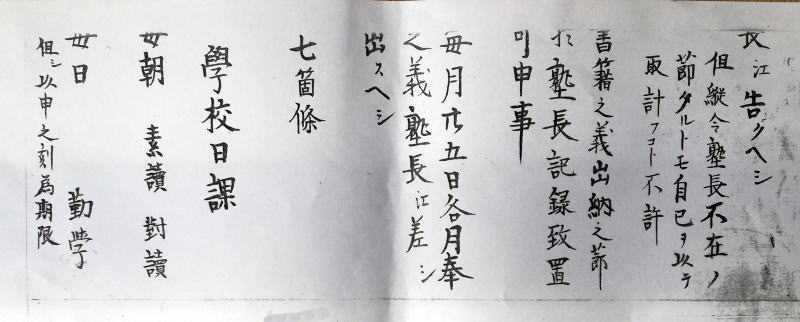 長江告クヘシ
但縦令塾長不在ノ
節タルトモ自己ヲ以テ
取計フコト不許
書籍之義出納之節
於塾長記録致置
可申事
毎月廿五日各月奉
之義塾長江差シ
出スヘシ
七箇條
學校日課
毎朝 素讀 對讀
毎日 勤学
但シ以申之刻為期限